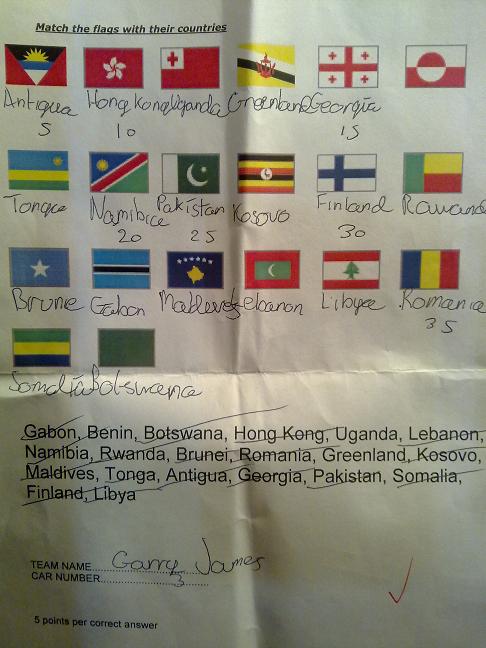 Match the flags with their countries
Antigua Hong Kong Uganda Greenland Georgia
5 10 15
Tonga Namibia Pakistan Kosovo Finland Rawanda
20 25 30
Brune Gabon Maldeves Lebanon Libya Romania
35
Somalia Botswana
Gabon, Benin, Botswana, Hong Kong, Uganda, Lebanon,
Namibia, Rwanda, Brunei, Romania, Greenland, Kosovo,
Maldives, Tonga, Antigua, Georgia, Pakistan, Somalia,
Finland, Libya
TEAM NAME Garry James
CAR NUMBER 3
5 points per correct answer